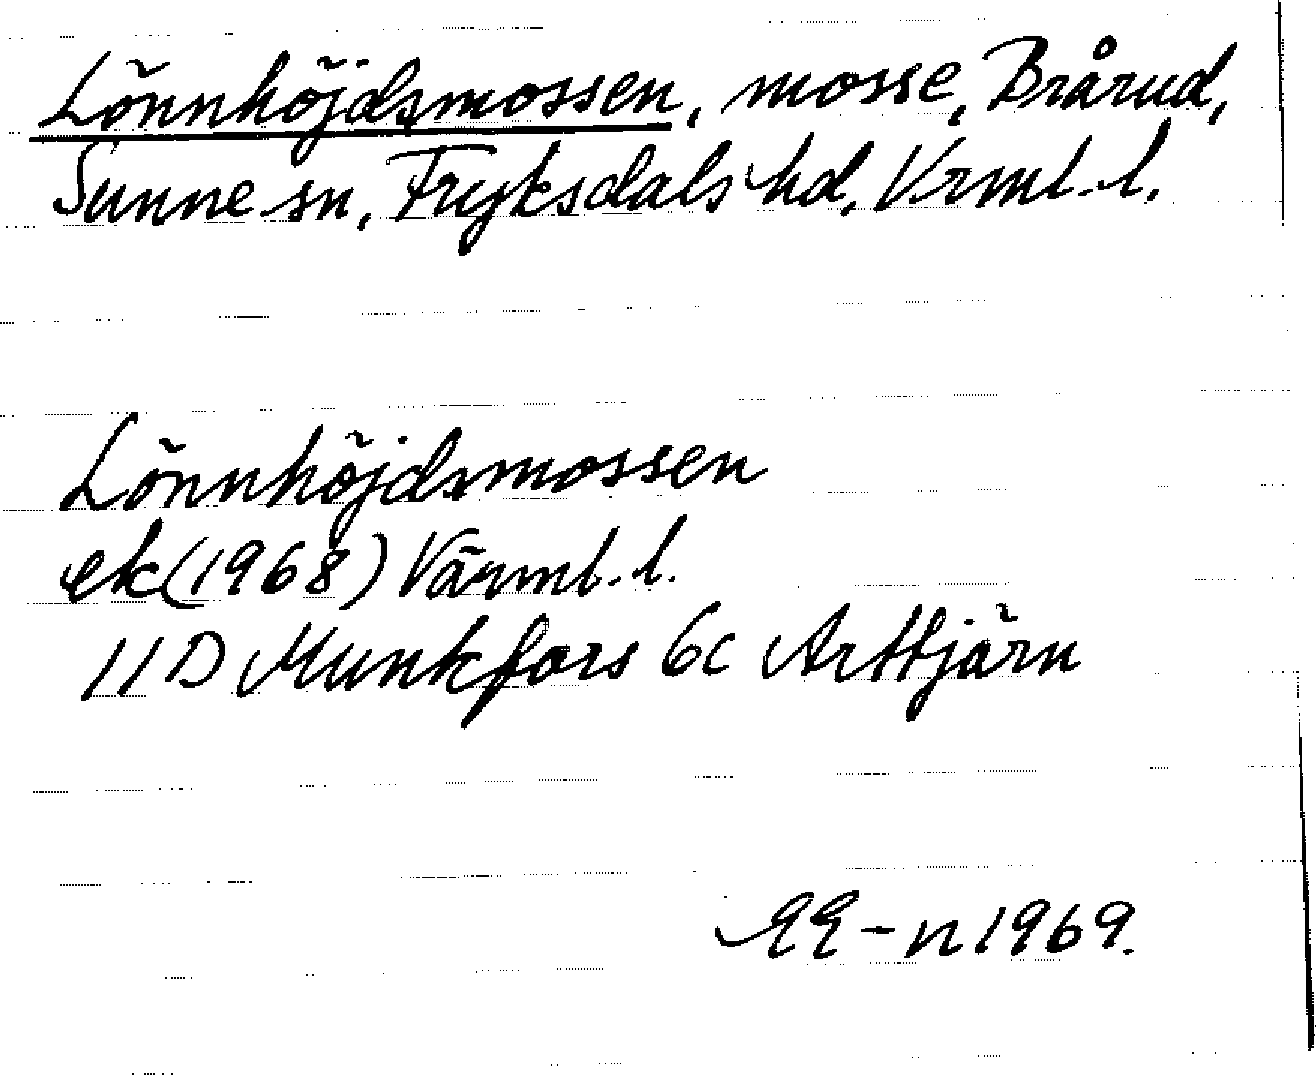 Lönnhöjdsmossen, mosse, Brårud,
Sunne sn, Fryksdals hd, Vrml. l.
Lönnhöjdsmossen
ek (1968) Värml. l.
11 D Munkfors 6c Arttjärn
EE-n 1969.